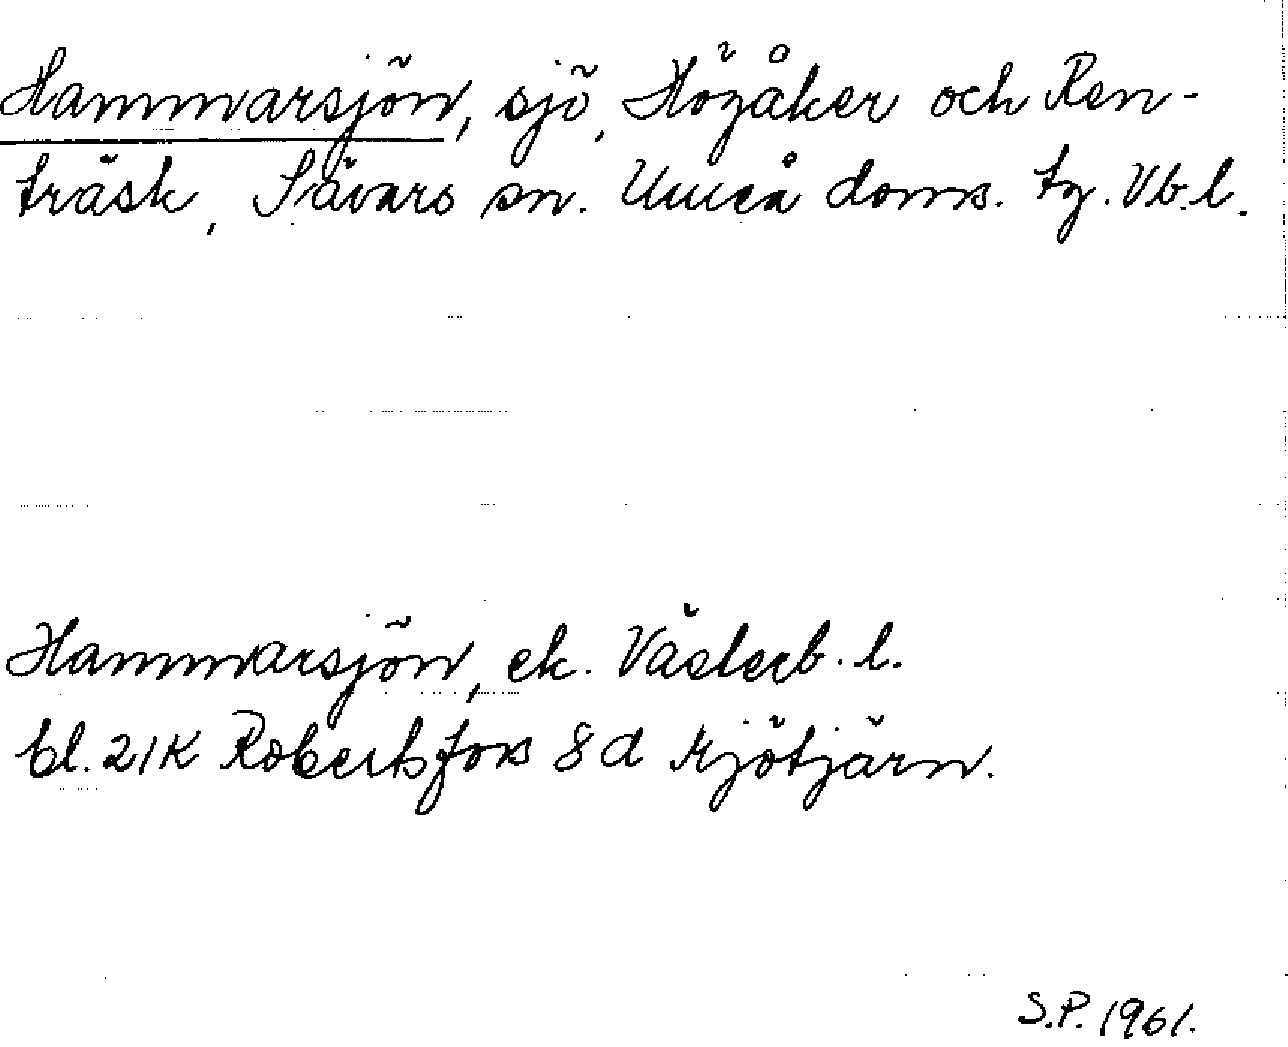 Hammarsjön, sjö, Högåker och Ren-
träsk, Sävars sn. Umeå doms. tg. Vb.l.
Hammarsjön, ek. Västerb. l.
bl. 21K Robertsfors 8d Mjötjärn.
S.P. 1961.